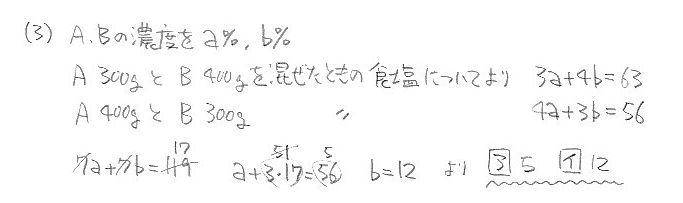 (3) A.Bの濃度をa%, b%
A 300gとB 400gを混ぜたときの食塩についてより 3a+4b=63
A 400gとB 300g 〃 4a+3b=56
7a+7b=119 17 a+3・17=56 51 5 b=12 より ヨ 5 イ 12